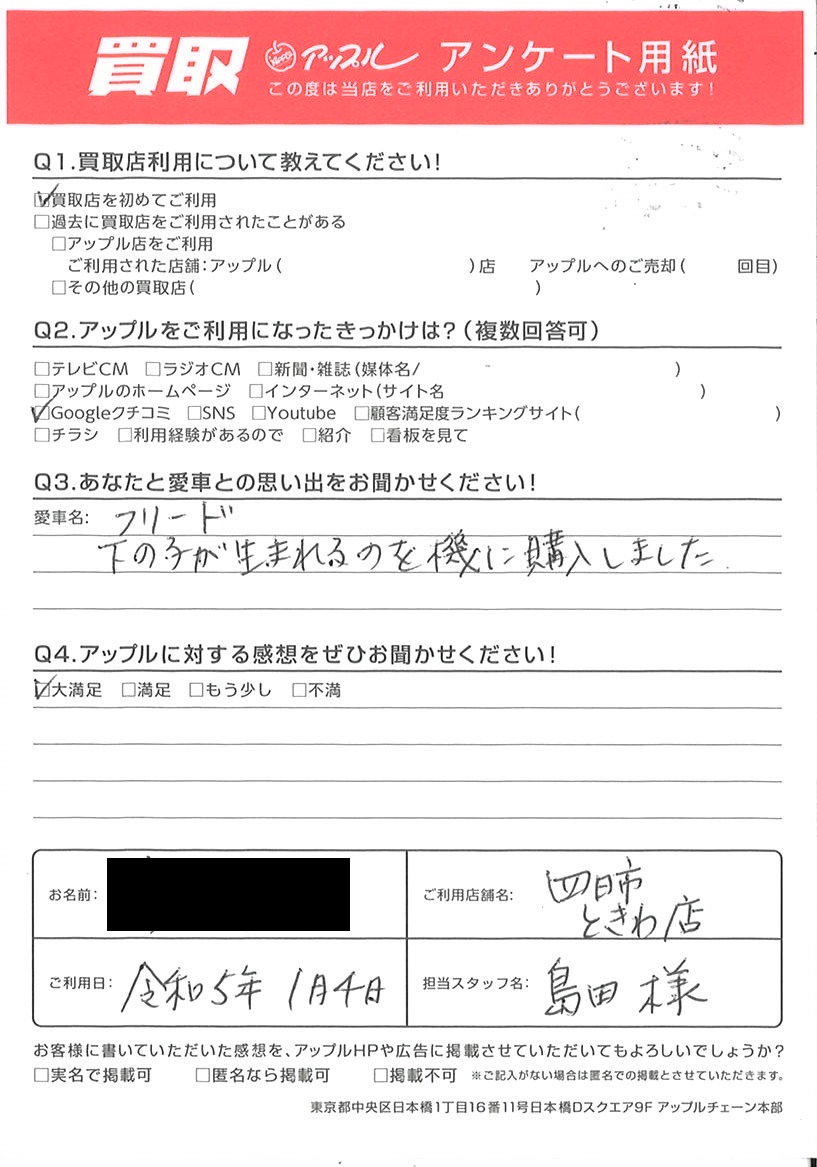 買取 アップル アンケート用紙
この度は当店をご利用いただきありがとうございます!
Q1.買取店利用について教えてください!
☑買取店を初めてご利用
□過去に買取店をご利用されたことがある
□アップル店をご利用
ご利用された店舗:アップル( )店 アップルへのご売却( 回目)
□その他の買取店( )
Q2.アップルをご利用になったきっかけは?(複数回答可)
□テレビCM □ラジオCM □新聞・雑誌(媒体名/ )
□アップルのホームページ □インターネット(サイト名 )
☑Googleクチコミ □SNS □Youtube □顧客満足度ランキングサイト( )
□チラシ □利用経験があるので □紹介 □看板を見て
Q3.あなたと愛車との思い出をお聞かせください!
愛車名: フリード
下の子が生まれるのを機に購入しました
Q4.アップルに対する感想をぜひお聞かせください!
☑大満足 □満足 □もう少し □不満
お名前:
ご利用店舗名: 四日市
ときわ店
ご利用日: 令和5年 1月4日
担当スタッフ名: 島田 様
お客様に書いていただいた感想を、アップルHPや広告に掲載させていただいてもよろしいでしょうか?
□実名で掲載可 □匿名なら掲載可 □掲載不可 ※ご記入がない場合は匿名での掲載とさせていただきます。
東京都中央区日本橋1丁目16番11号日本橋Dスクエア9F アップルチェーン本部